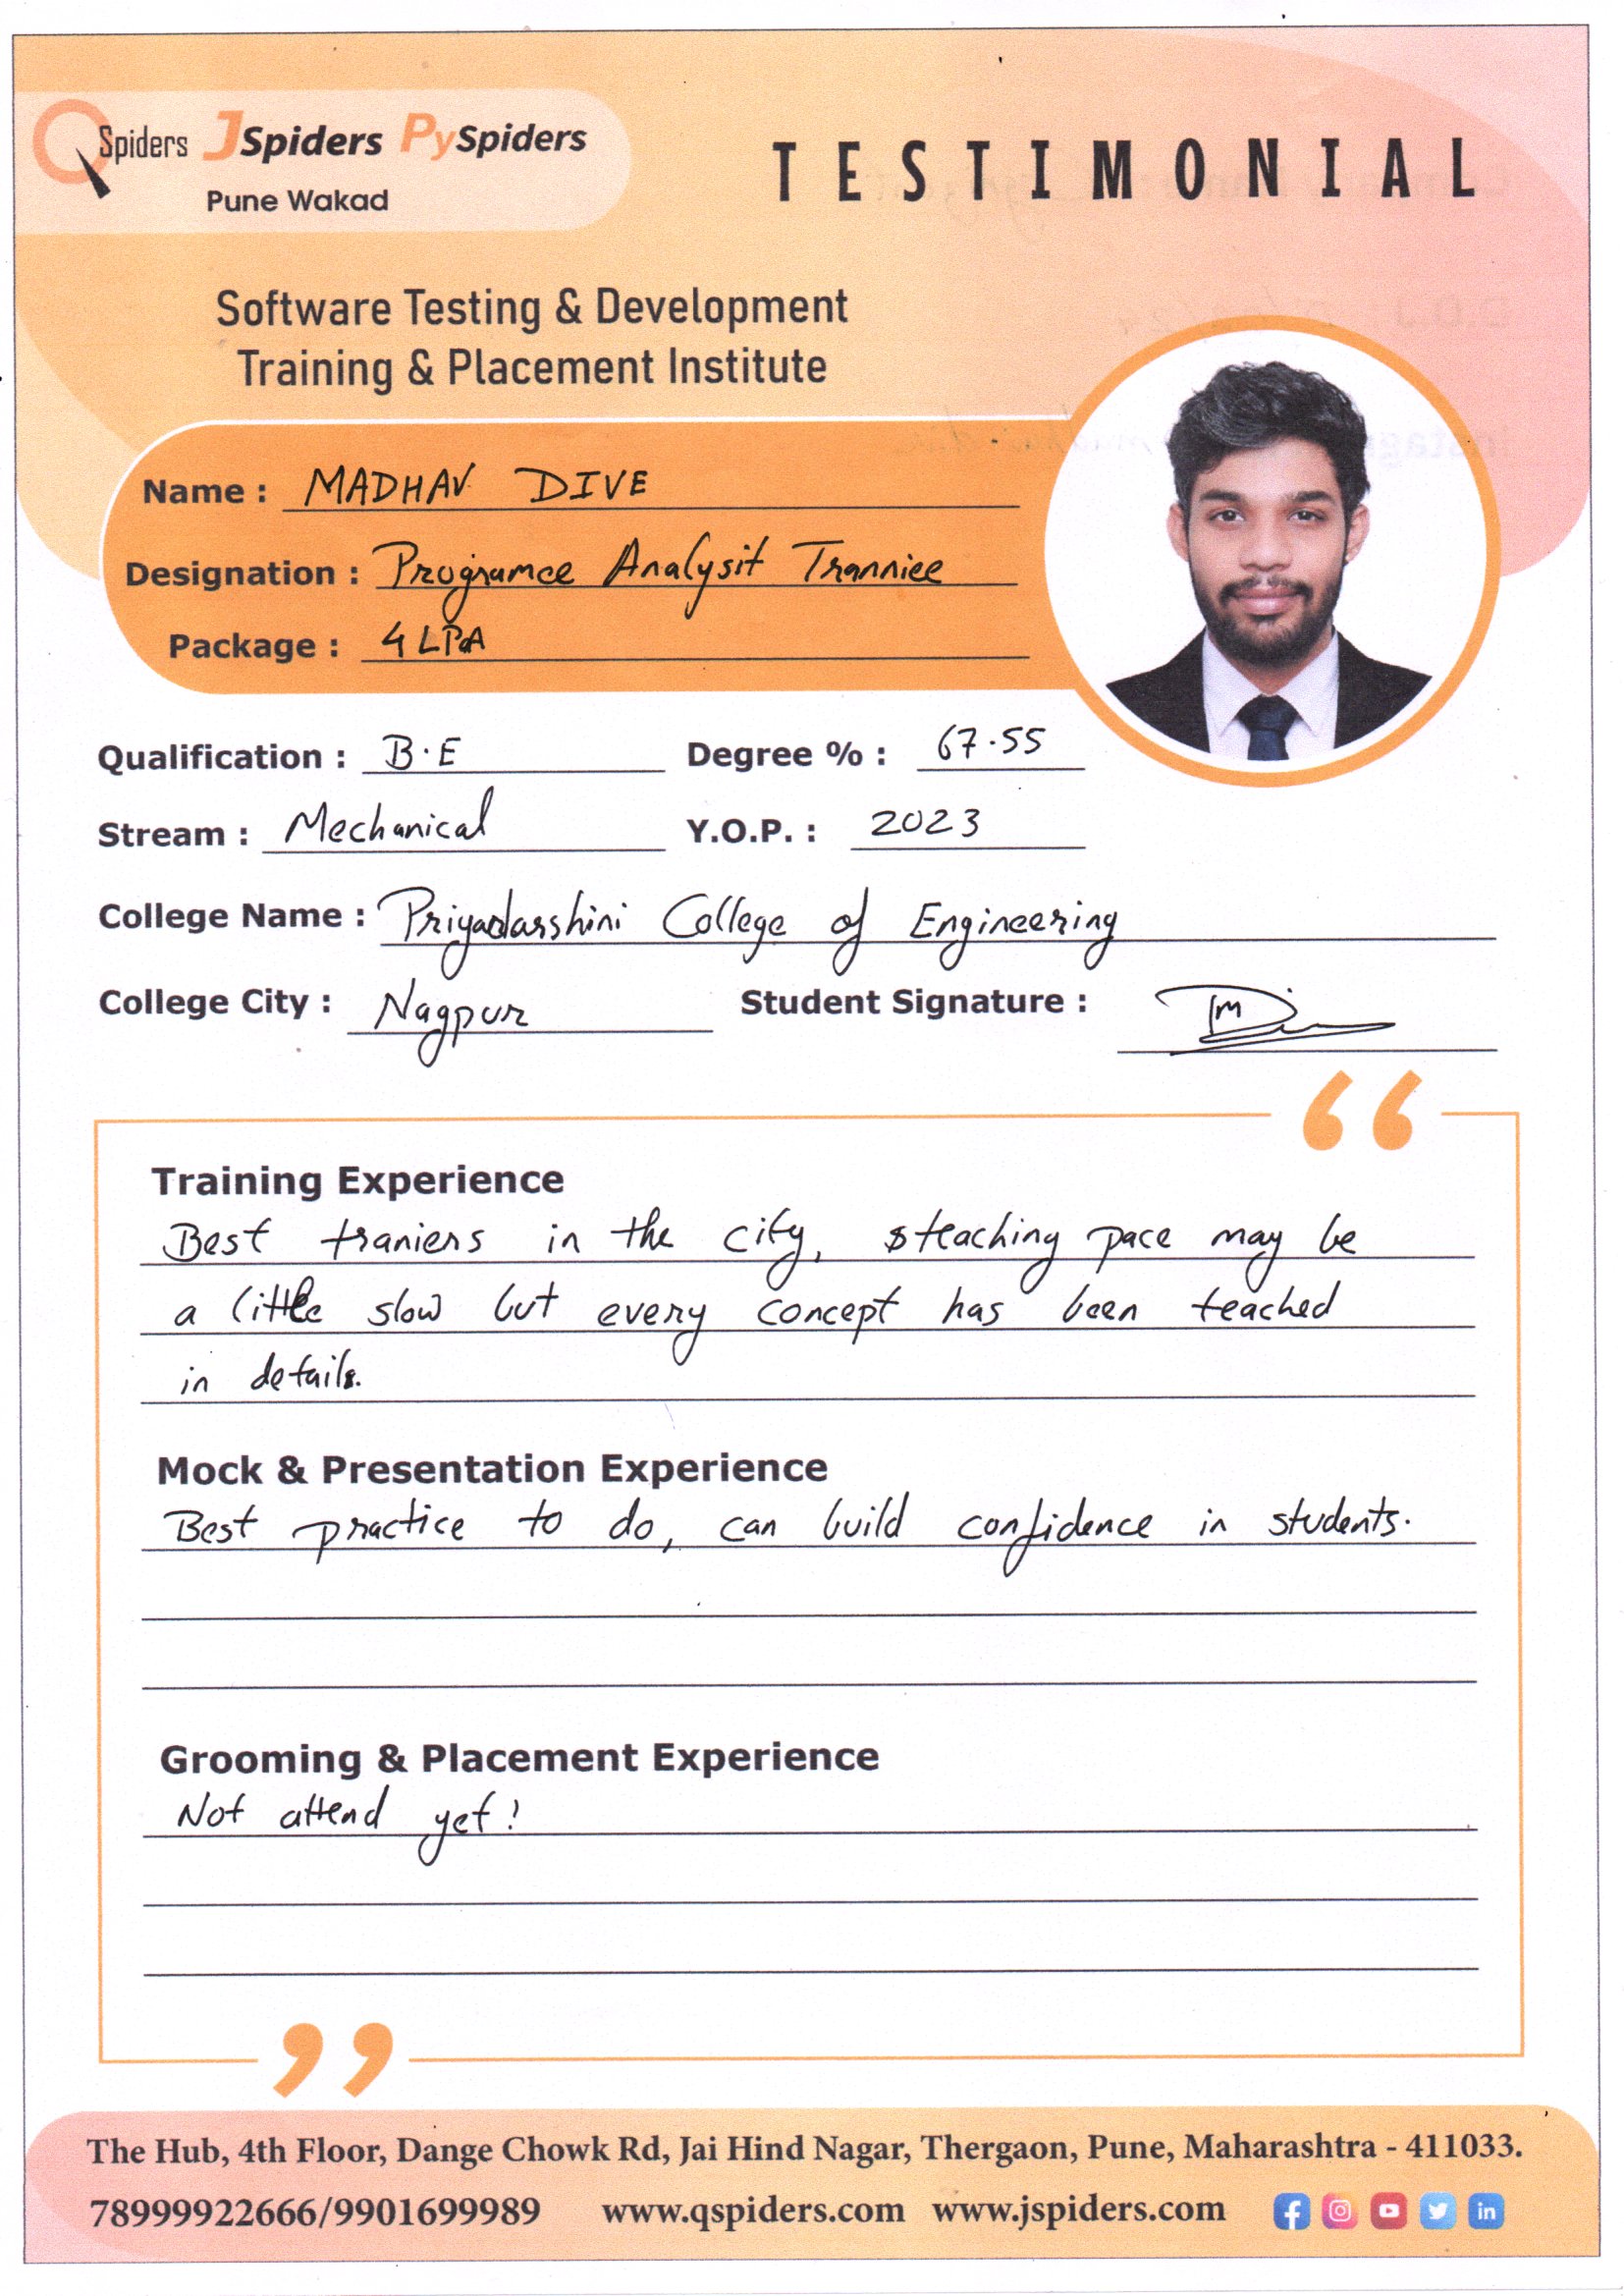 QSpiders JSpiders PySpiders
Pune Wakad
TESTIMONIAL
Software Testing & Development
Training & Placement Institute
Name : MADHAV DIVE
Designation : Programee Analysit Tranniee
Package : 4 LPA
Qualification : B.E Degree % : 67.55
Stream : Mechanical Y.O.P. : 2023
College Name : Priyadarshini College of Engineering
College City : Nagpur Student Signature :
“
Training Experience
Best traniers in the city, teaching pace may be
a little slow but every concept has been teached
in details.
Mock & Presentation Experience
Best practice to do, can build confidence in students.
Grooming & Placement Experience
Not attend yet!
”
The Hub, 4th Floor, Dange Chowk Rd, Jai Hind Nagar, Thergaon, Pune, Maharashtra - 411033.
78999922666/9901699989 www.qspiders.com www.jspiders.com